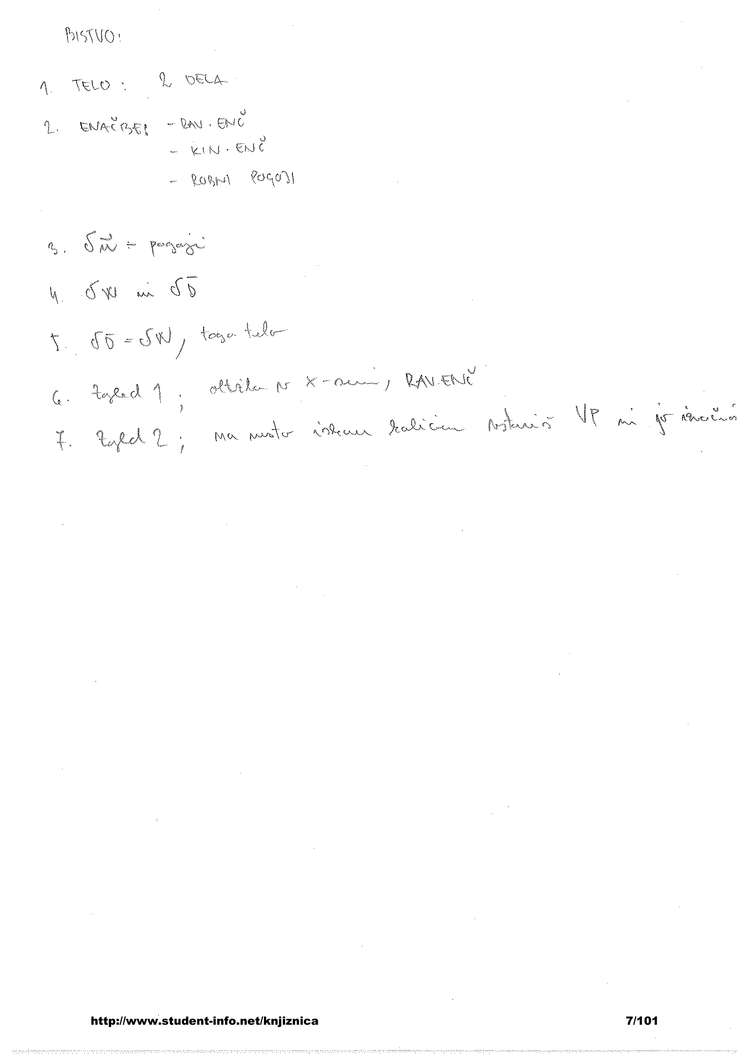 BISTVO:
1. TELO: 2 DELA
2. ENAČBE: - RAV. ENČ
- KIN. ENČ
- ROBNI POGOJI
3. δu⃗ ÷ pogoji
4. δW in δD̄
5. δD̄ = δW, togo telo
6. Zgled 1; v x-smeri, RAV. ENČ
7. Zgled 2; na mesto iskane količine VP in jo izračunaš
http://www.student-info.net/knjiznica 7/101